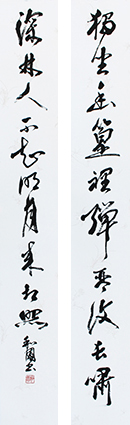 獨坐幽篁裡彈琴復長嘯
深林人不知明月来相照